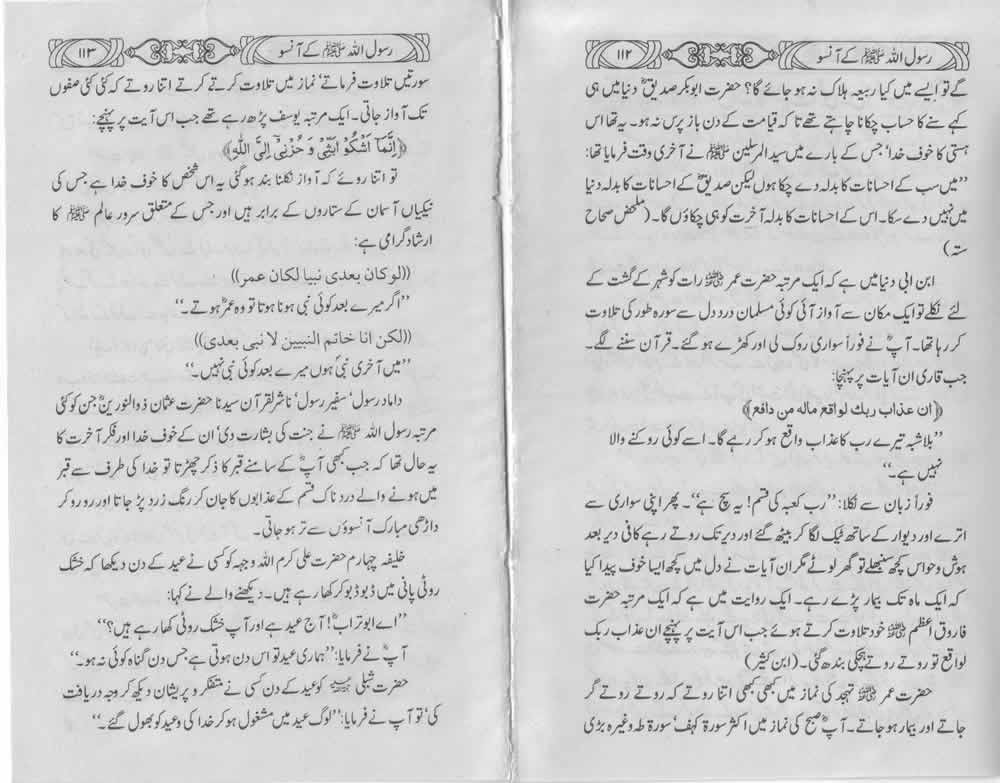 رسول اللہ ﷺ کے آنسو
۱۱۲
گے تو ایسے میں کیا ربیعہ ہلاک نہ ہو جائے گا؟ حضرت ابوبکر صدیقؓ دنیا میں ہی
کہے سنے کا حساب چکانا چاہتے تھے تاکہ قیامت کے دن باز پرس نہ ہو۔ یہ تھا اس
ہستی کا خوف خدا' جس کے بارے میں سید المرسلین ﷺ نے آخری وقت فرمایا تھا:
’’میں سب کے احسانات کا بدلہ دے چکا ہوں لیکن صدیقؓ کے احسانات کا بدلہ دنیا
میں نہیں دے سکا۔ اس کے احسانات کا بدلہ آخرت کو ہی چکاؤں گا۔ (ملخص صحاح
ستہ)
ابن ابی دنیا میں ہے کہ ایک مرتبہ حضرت عمر رضی اللہ عنہ رات کو شہر کے گشت کے
لئے نکلے تو ایک مکان سے آواز آئی کوئی مسلمان درد دل سے سورہ طور کی تلاوت
کر رہا تھا۔ آپؓ نے فوراً سواری روک لی اور کھڑے ہو گئے۔ قرآن سننے لگے۔
جب قاری ان آیات پر پہنچا:
﴿ان عذاب ربك لواقع ماله من دافع﴾
’’بلاشبہ تیرے رب کا عذاب واقع ہو کر رہے گا۔ اسے کوئی روکنے والا
نہیں ہے۔‘‘
فوراً زبان سے نکلا: ’’رب کعبہ کی قسم! یہ سچ ہے‘‘۔ پھر اپنی سواری سے
اترے اور دیوار کے ساتھ ٹیک لگا کر بیٹھ گئے اور دیر تک روتے رہے کافی دیر بعد
ہوش و حواس کچھ سنبھلے تو گھر لوٹے مگر ان آیات نے دل میں کچھ ایسا خوف پیدا کیا
کہ ایک ماہ تک بیمار پڑے رہے۔ ایک روایت میں ہے کہ ایک مرتبہ حضرت
فاروق اعظم رضی اللہ عنہ خود تلاوت کرتے ہوئے جب اس آیت پر پہنچے ان عذاب ربک
لواقع تو روتے روتے ہچکی بندھ گئی۔ (ابن کثیر)
حضرت عمر رضی اللہ عنہ تہجد کی نماز میں کبھی کبھی اتنا روتے کہ روتے روتے گر
جاتے اور بیمار ہو جاتے۔ آپؓ صبح کی نماز میں اکثر سورۃ کہف' سورۃ طہ وغیرہ بڑی
رسول اللہ ﷺ کے آنسو
۱۱۳
سورتیں تلاوت فرماتے' نماز میں تلاوت کرتے کرتے اتنا روتے کہ کئی کئی صفوں
تک آواز جاتی۔ ایک مرتبہ یوسف پڑھ رہے تھے جب اس آیت پر پہنچے:
﴿اِنَّمَا اَشْكُوْ ابَثِّىْ وَ حُزْنِىْٓ اِلَى اللّٰهِ﴾
تو اتنا روئے کہ آواز نکلنا بند ہو گئی یہ اس شخص کا خوف خدا ہے جس کی
نیکیاں آسمان کے ستاروں کے برابر ہیں اور جس کے متعلق سرور عالم ﷺ کا
ارشاد گرامی ہے:
((لو كان بعدى نبيا لكان عمر))
’’اگر میرے بعد کوئی نبی ہونا ہوتا تو وہ عمرؓ ہوتے۔‘‘
((لكن انا خاتم النبيين لا نبى بعدى))
’’میں آخری نبی ہوں میرے بعد کوئی نبی نہیں۔‘‘
داماد رسول' سفیر رسول' ناشر لقرآن سیدنا حضرت عثمان ذوالنورینؓ جن کو کئی
مرتبہ رسول اللہ ﷺ نے جنت کی بشارت دی' ان کے خوف خدا اور فکر آخرت کا
یہ حال تھا کہ جب کبھی آپؓ کے سامنے قبر کا ذکر چھڑتا تو خدا کی طرف سے قبر
میں ہونے والے درد ناک قسم کے عذابوں کا جان کر رنگ زرد پڑ جاتا اور رو رو کر
داڑھی مبارک آنسوؤں سے تر ہو جاتی۔
خلیفہ چہارم حضرت علی کرم اللہ وجہہ کو کسی نے عید کے دن دیکھا کہ خشک
روٹی پانی میں ڈبو ڈبو کر کھا رہے ہیں۔ دیکھنے والے نے کہا:
’’اے ابو ترابؓ! آج عید ہے اور آپ خشک روٹی کھا رہے ہیں؟‘‘
آپؓ نے فرمایا: ’’ہماری عید تو اس دن ہوتی ہے جس دن گناہ کوئی نہ ہو۔‘‘
حضرت شبلی رحمۃ اللہ علیہ کو عید کے دن کسی نے متفکر و پریشان دیکھ کر وجہ دریافت
کی' تو آپ نے فرمایا: ’’لوگ عید میں مشغول ہو کر خدا کی وعید کو بھول گئے۔‘‘